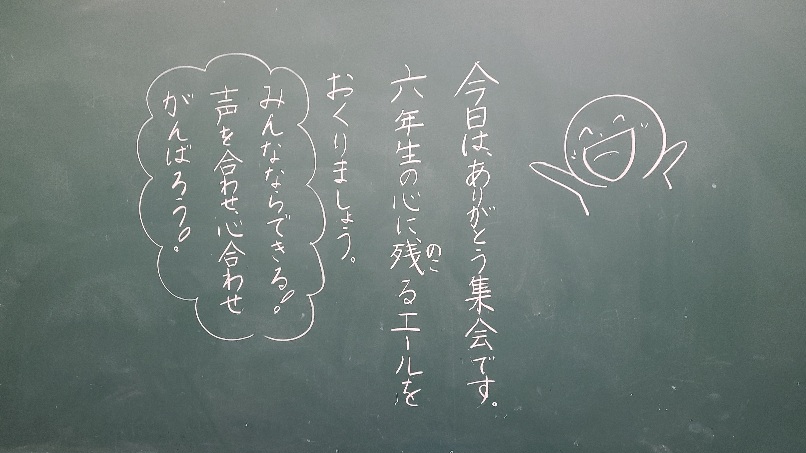 今日は、ありがとう集会です。
六年生の心に、残るエールを
のこ
おくりましょう。
みんなならできる!
声を合わせ、心合わせ
がんばろう!